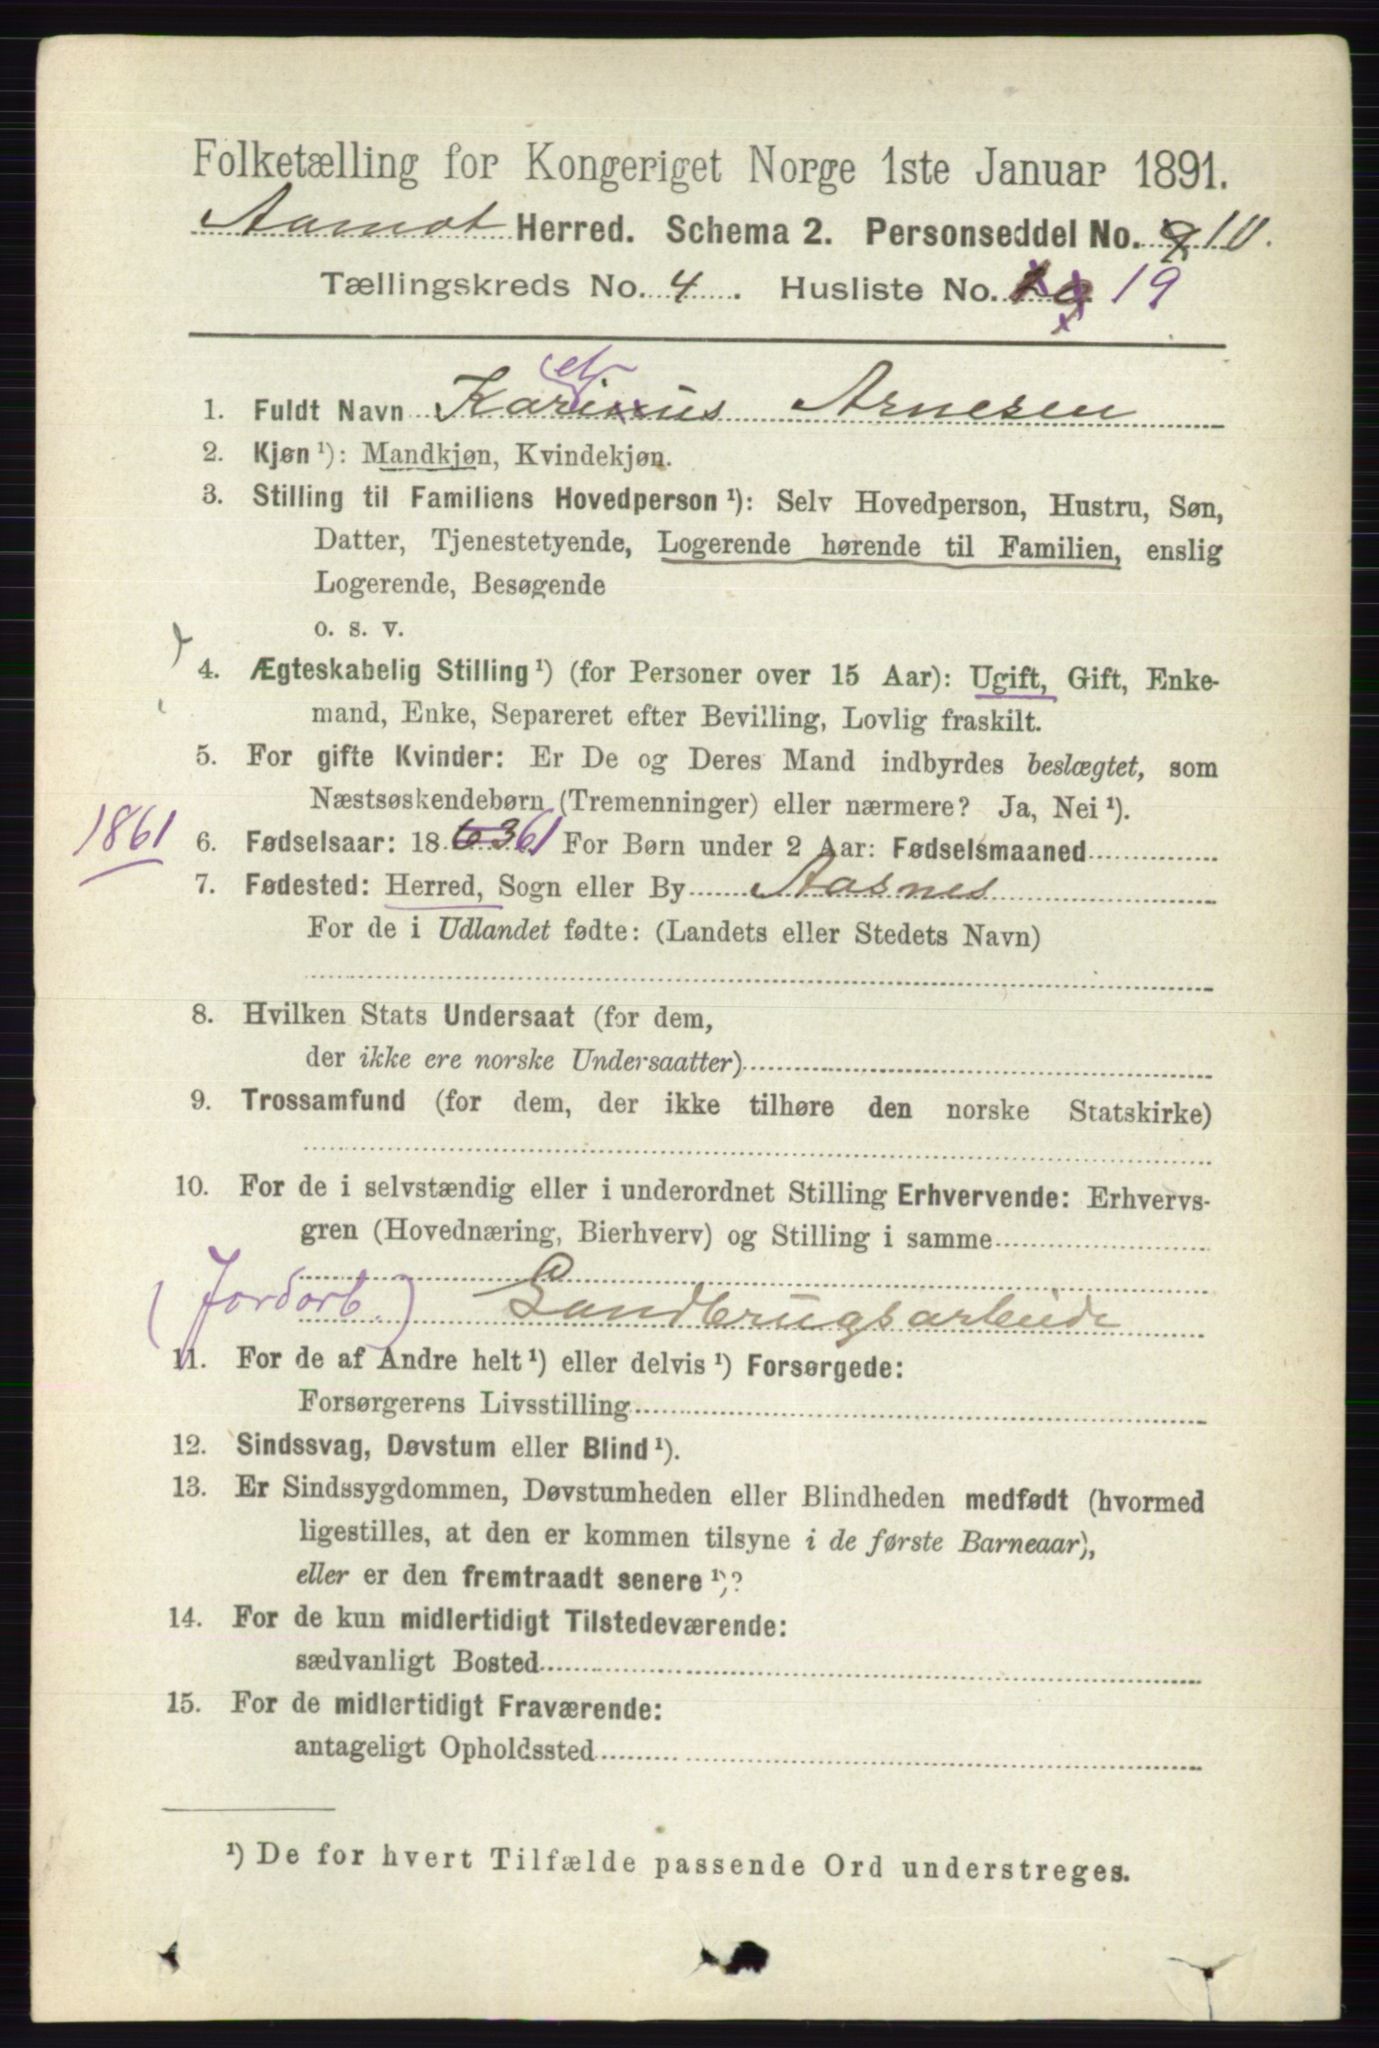 Folketælling for Kongeriget Norge 1ste Januar 1891.
Aamot Herred. Schema 2. Personseddel No. 9 10.
Tællingskreds No. 4. Husliste No. 19 19
1. Fuldt Navn Karinus Arnesen
2. Kjøn ¹): Mandkjøn, Kvindekjøn.
3. Stilling til Familiens Hovedperson ¹): Selv Hovedperson, Hustru, Søn,
Datter, Tjenestetyende, Logerende hørende til Familien, enslig
Logerende, Besøgende
o. s. v.
4. Ægteskabelig Stilling ¹) (for Personer over 15 Aar): Ugift, Gift, Enke-
mand, Enke, Separeret efter Bevilling, Lovlig fraskilt.
5. For gifte Kvinder: Er De og Deres Mand indbyrdes beslægtet, som
Næstsøskendebørn (Tremenninger) eller nærmere? Ja, Nei ¹).
1861 6. Fødselsaar: 18 63 61 For Børn under 2 Aar: Fødselsmaaned
7. Fødested: Herred, Sogn eller By Aasnes
For de i Udlandet fødte: (Landets eller Stedets Navn)
8. Hvilken Stats Undersaat (for dem,
der ikke ere norske Undersaatter)
9. Trossamfund (for dem, der ikke tilhøre den norske Statskirke)
10. For de i selvstændig eller i underordnet Stilling Erhvervende: Erhvervs-
gren (Hovednæring, Bierhverv) og Stilling i samme
(Jordarb.) Gaardbrugsarbeide
11. For de af Andre helt ¹) eller delvis ¹) Forsørgede:
Forsørgerens Livsstilling
12. Sindssvag, Døvstum eller Blind ¹).
13. Er Sindssygdommen, Døvstumheden eller Blindheden medfødt (hvormed
ligestilles, at den er kommen tilsyne i de første Barneaar),
eller er den fremtraadt senere ¹)?
14. For de kun midlertidigt Tilstedeværende:
sædvanligt Bosted
15. For de midlertidigt Fraværende:
antageligt Opholdssted
¹) De for hvert Tilfælde passende Ord understreges.